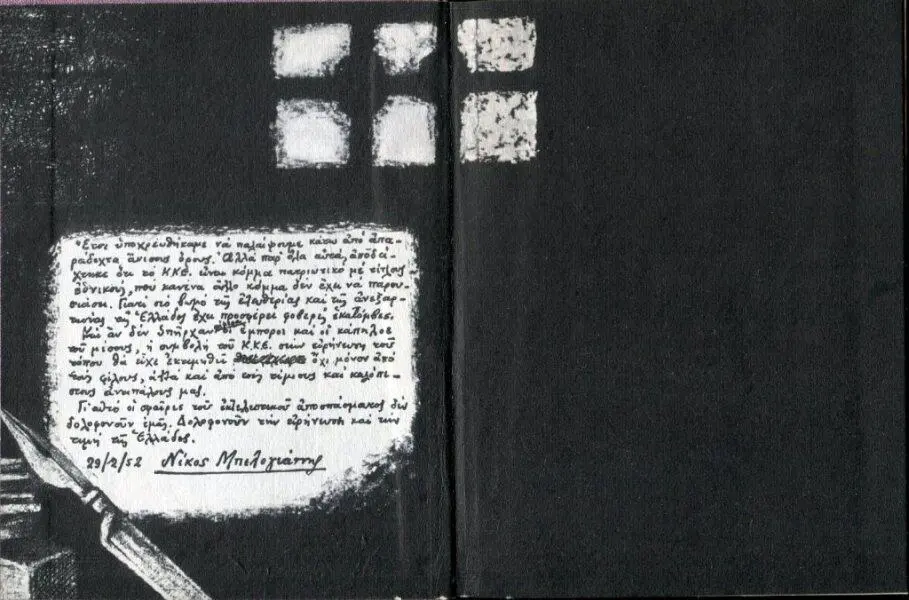 Ἔτσι ὑποχρεωθήκαμε νά παλαίψουμε κάτω ἀπό ἀπα-
ράδεχτα ἄνισους ὅρους. Ἀλλά παρ' ὅλα αὐτά, ἀποδεί-
χτηκε ὅτι τό Κ.Κ.Ε. εἶναι κόμμα πατριωτικό μέ τίτλους
ἐθνικούς, πού κανένα ἄλλο κόμμα δέν ἔχει νά παρου-
σιάσει. Γιατί στό βωμό τῆς ἐλευθερίας καί τῆς ἀνεξαρ-
τησίας τῆς Ἑλλάδος ἔχει προσφέρει φοβερές ἑκατόμβες.
Καί ἄν δέν ὑπῆρχαν οἱ ἔμποροι καί οἱ κάπηλοι
τοῦ μίσους, ἡ συμβολή τοῦ Κ.Κ.Ε. στήν εἰρήνευση τοῦ
τόπου θά εἶχε ἐκτιμηθεῖ ὄχι μόνον ἀπό
τούς φίλους, ἀλλά καί ἀπό τούς τίμιους καί καλόπι-
στους ἀντιπάλους μας.
Γι' αὐτό οἱ σφαῖρες τοῦ ἐκτελεστικοῦ ἀποσπάσματος δέν
δολοφονοῦν ἐμᾶς. Δολοφονοῦν τήν εἰρήνευση καί τήν
τιμή τῆς Ἑλλάδος.
29/2/52 Νίκος Μπελογιάννης